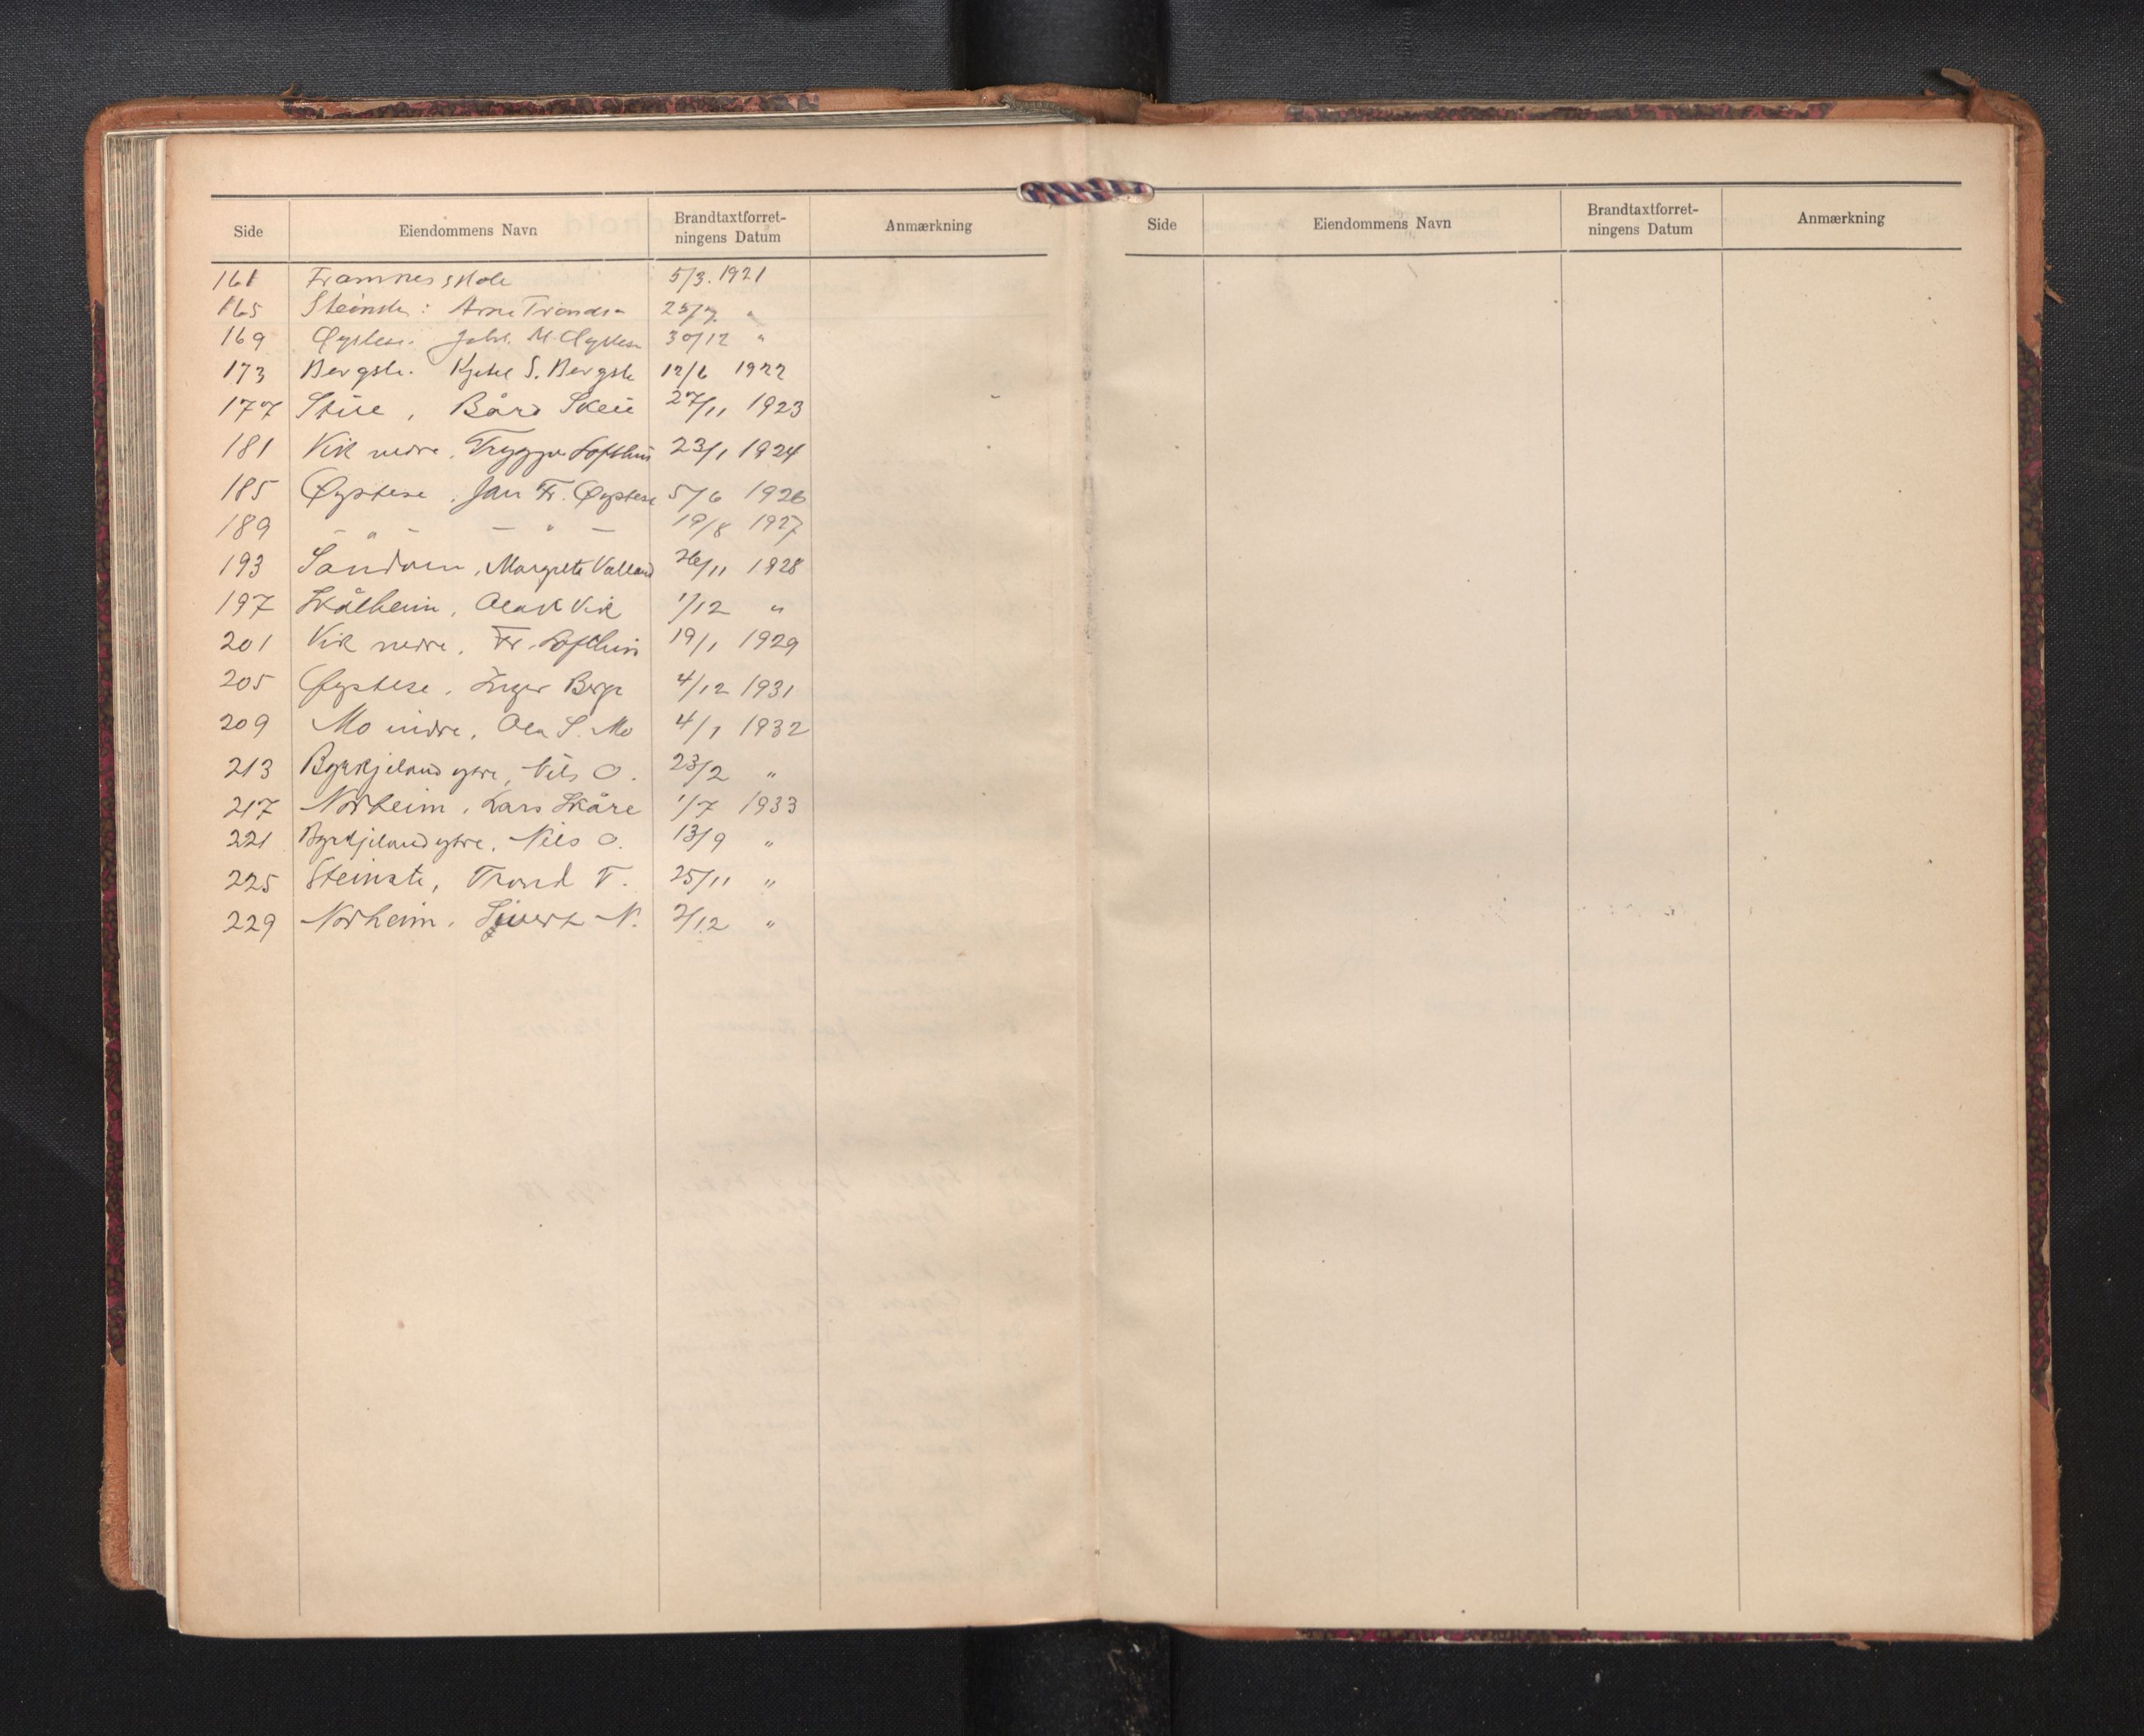 Side Eiendommens Navn Brandtaxtforret-ningens Datum Anmærkning
161 Framnes skole 5/3. 1921
165 Steinstø: Arne Trondsn 25/7. "
169 Øystese. Joh. M. Øystese 30/12 "
173 Bergstø. Kjetel S. Bergstø 12/6 1922
177 Skeie, Bård Skeie 27/11 1923
181 Vik nedre, Trygve Lofthus 23/1 1924
185 Øystese, Jan Fr. Øystese 5/6 1926
189 — " — — " — 19/8 1927
193 Sandven, Margrete Valland 26/11 1928
197 Skålheim, Olav K Vik 1/12 "
201 Vik nedre, Fr. Lofthus 19/1 1929
205 Øystese, Inger Berge 4/12 1931
209 Mo indre, Ola S. Mo 4/1 1932
213 Byrkjeland ytre, Nils O. 23/2 "
217 Norheim, Lars Skåre 1/7 1933
221 Byrkjeland ytre, Nils O. 13/9 "
225 Steinstø, Trond T. 25/11 "
229 Norheim, Sjuert N. 2/12 "
Side Eiendommens Navn Brandtaxtforret-ningens Datum Anmærkning